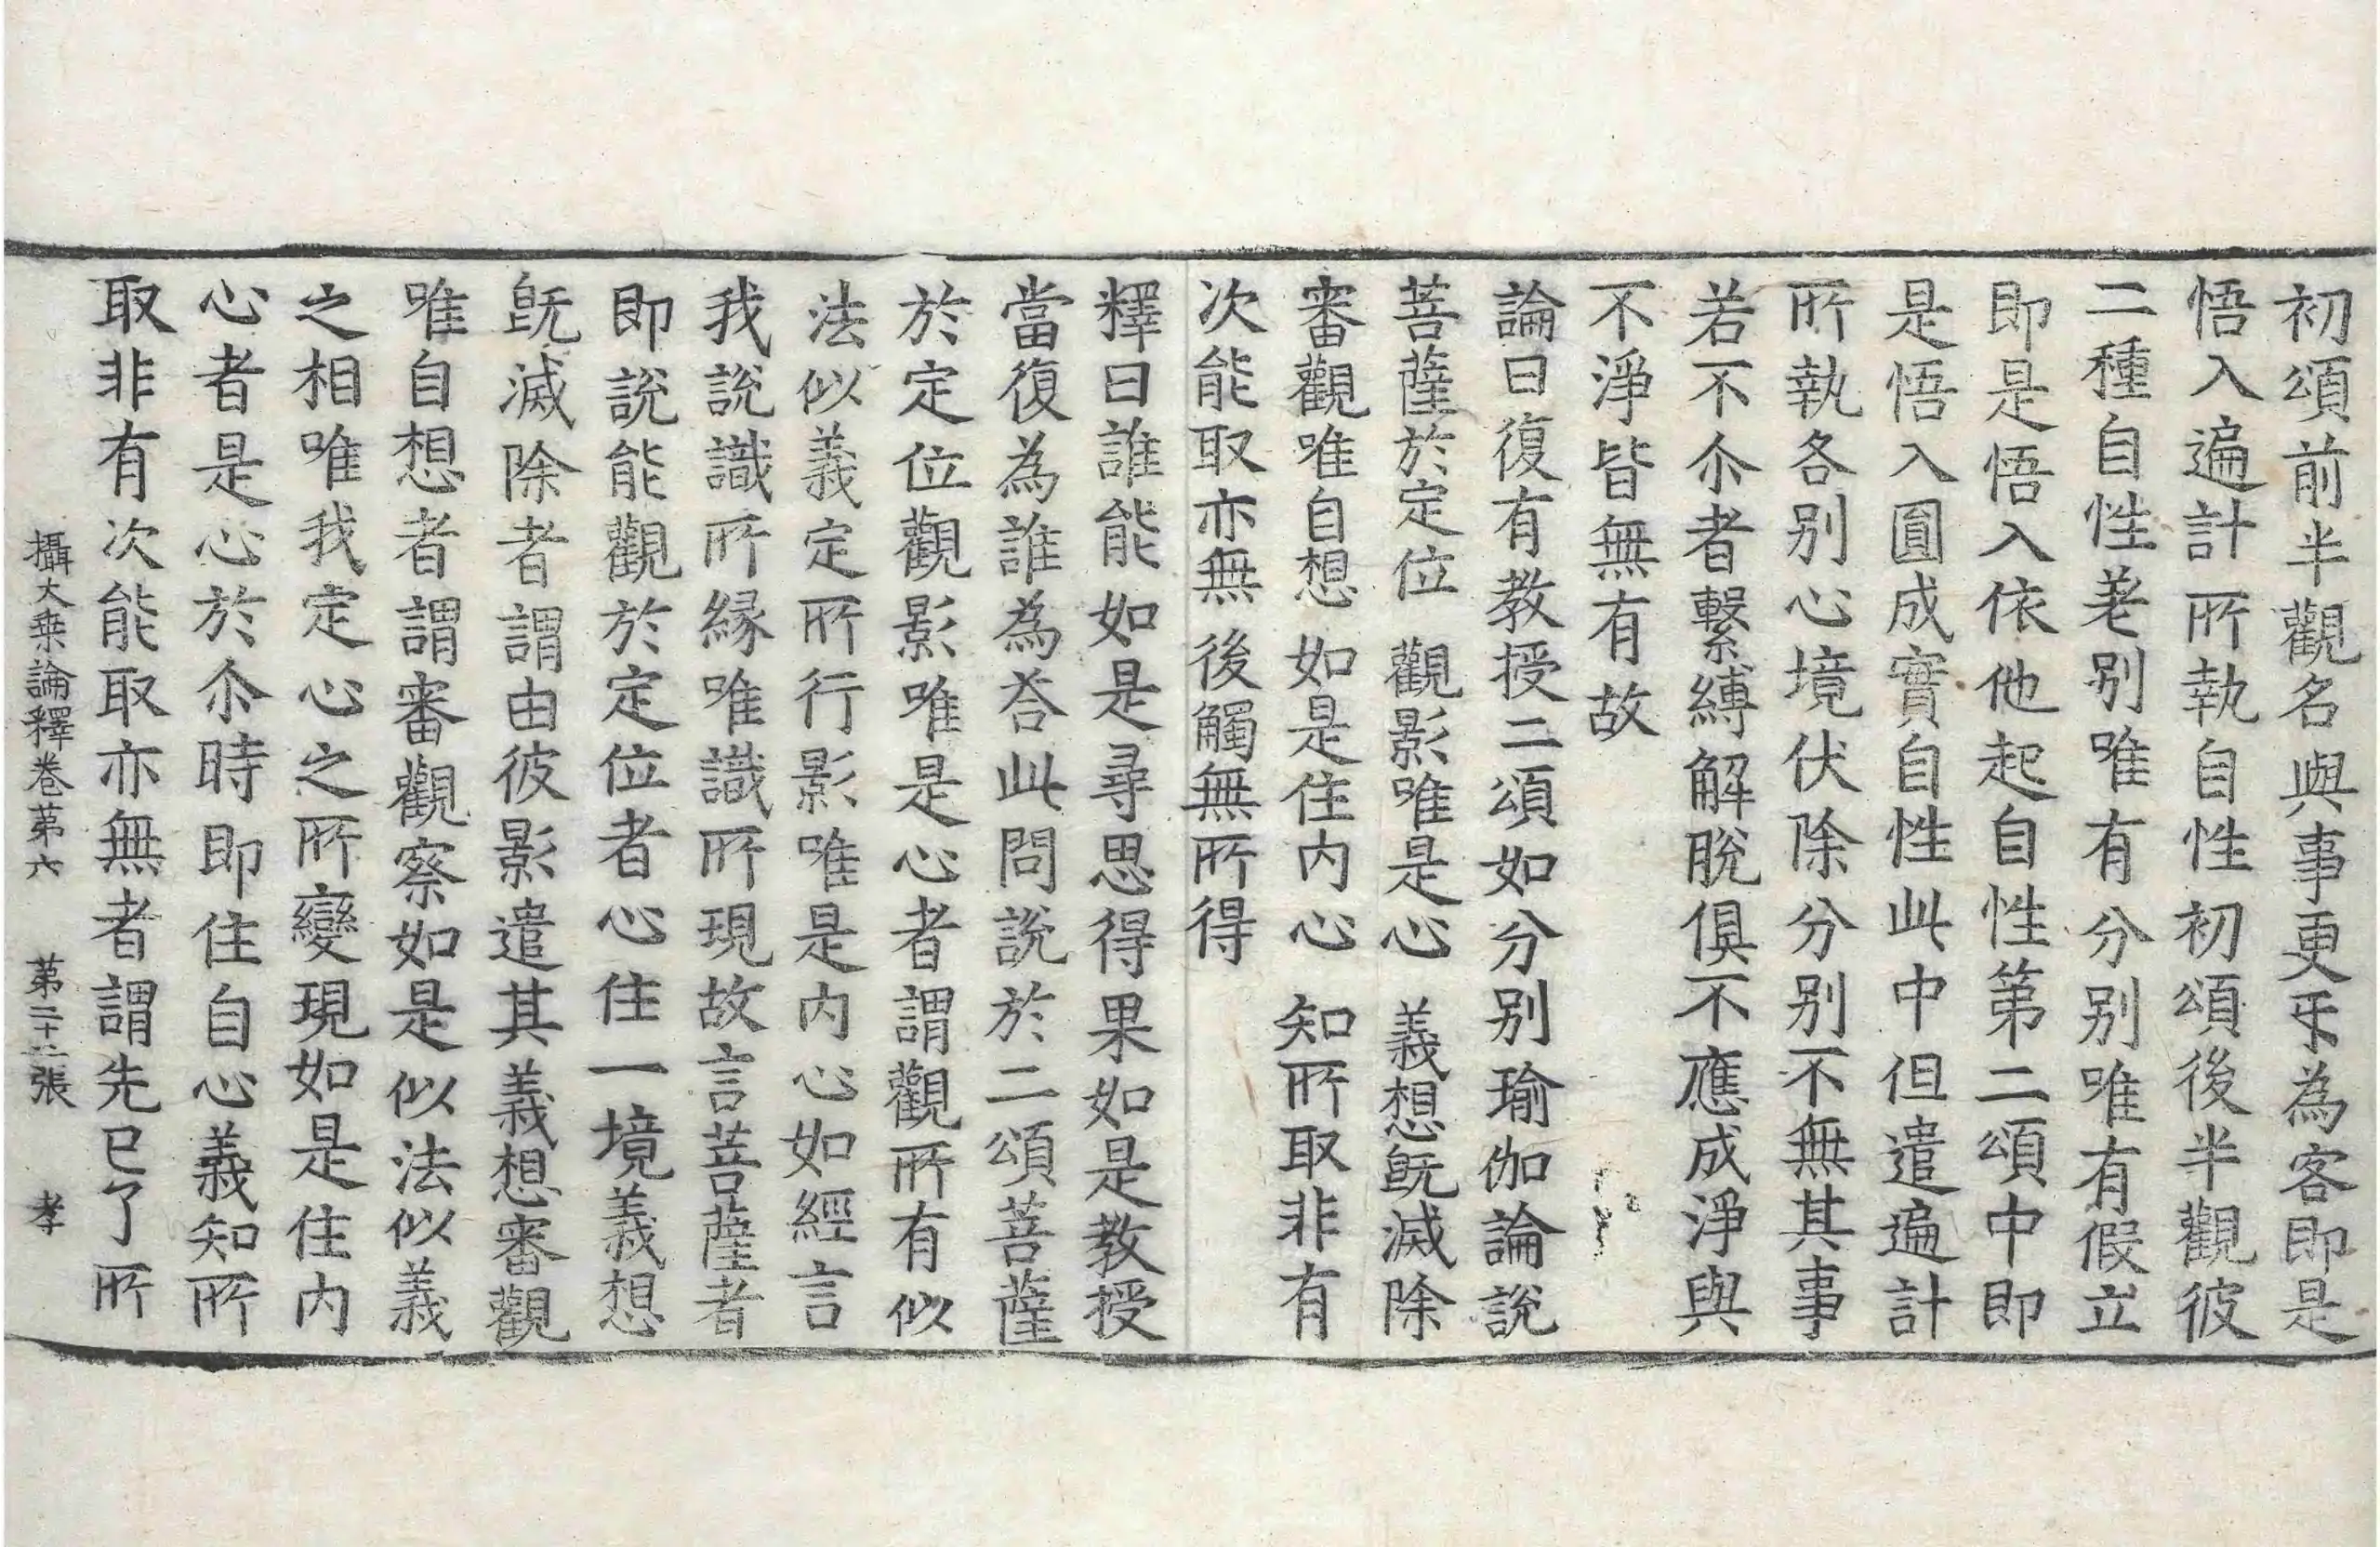 初頌前半觀名與事更㸦為客即是
悟入遍計所執自性初頌後半觀彼
二種自性差別唯有分別唯有假立
即是悟入依他起自性第二頌中即
是悟入圓成實自性此中但遣遍計
所執各別心境伏除分別不無其事
若不尒者繫縛解脫俱不應成淨與
不淨皆無有故
論曰復有教授二頌如分別瑜伽論說
菩薩於定位 觀影唯是心 義想旣滅除
審觀唯自想 如是住内心 知所取非有
次能取亦無 後觸無所得
釋曰誰能如是尋思得果如是教授
當復為誰為荅此問說於二頌菩薩
於定位觀影唯是心者謂觀所有似
法似義定所行影唯是内心如經言
我說識所緣唯識所現故言菩薩者
即說能觀於定位者心住一境義想
旣滅除者謂由彼影遣其義想審觀
唯自想者謂審觀察如是似法似義
之相唯我定心之所變現如是住内
心者是心於尒時即住自心義知所
取非有次能取亦無者謂先已了所
攝大乗論釋卷第六 第二十二張 孝